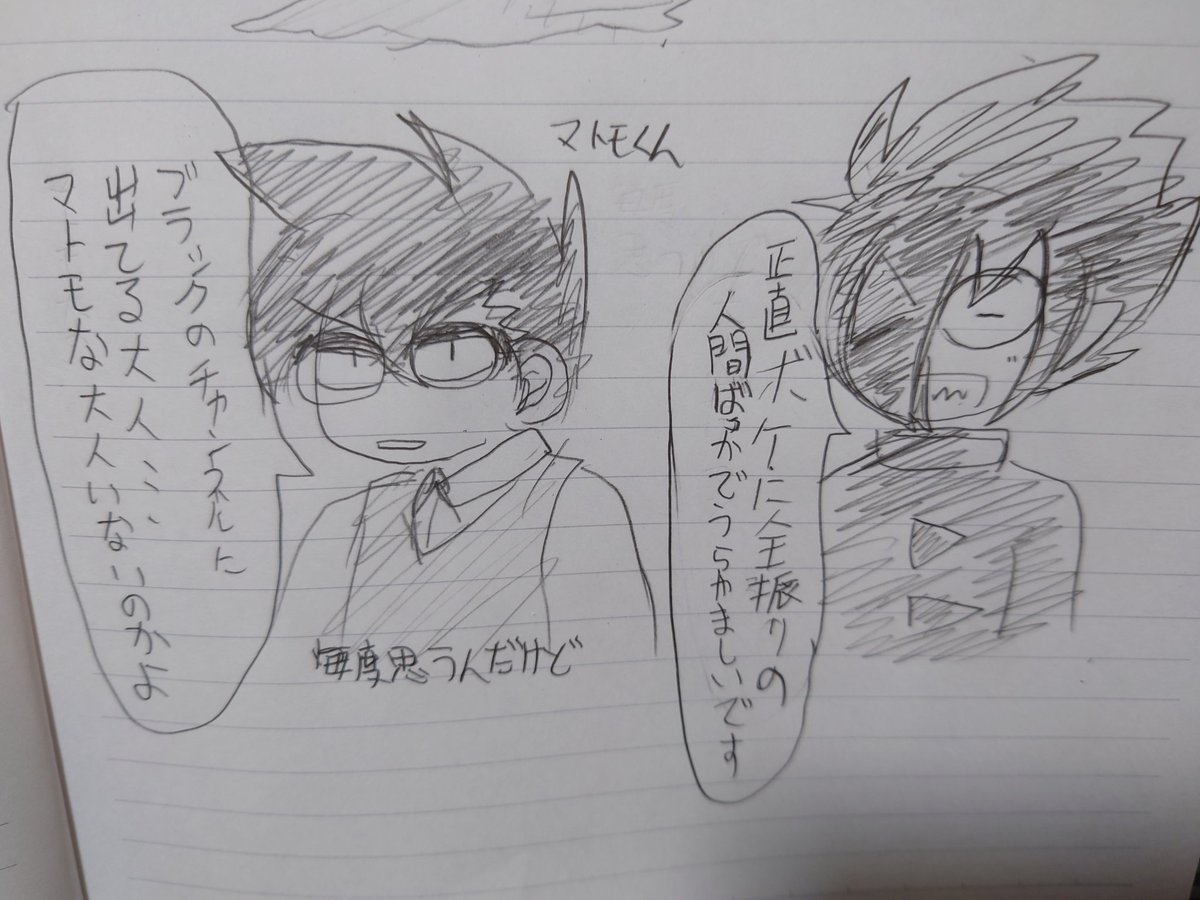 マトモくん
正直ボケに全振りの
人間ばっかでうらやましいです
ブラックのチャンネルに
出てる大人、、、
マトモな大人いないのかよ
毎度思うんだけど